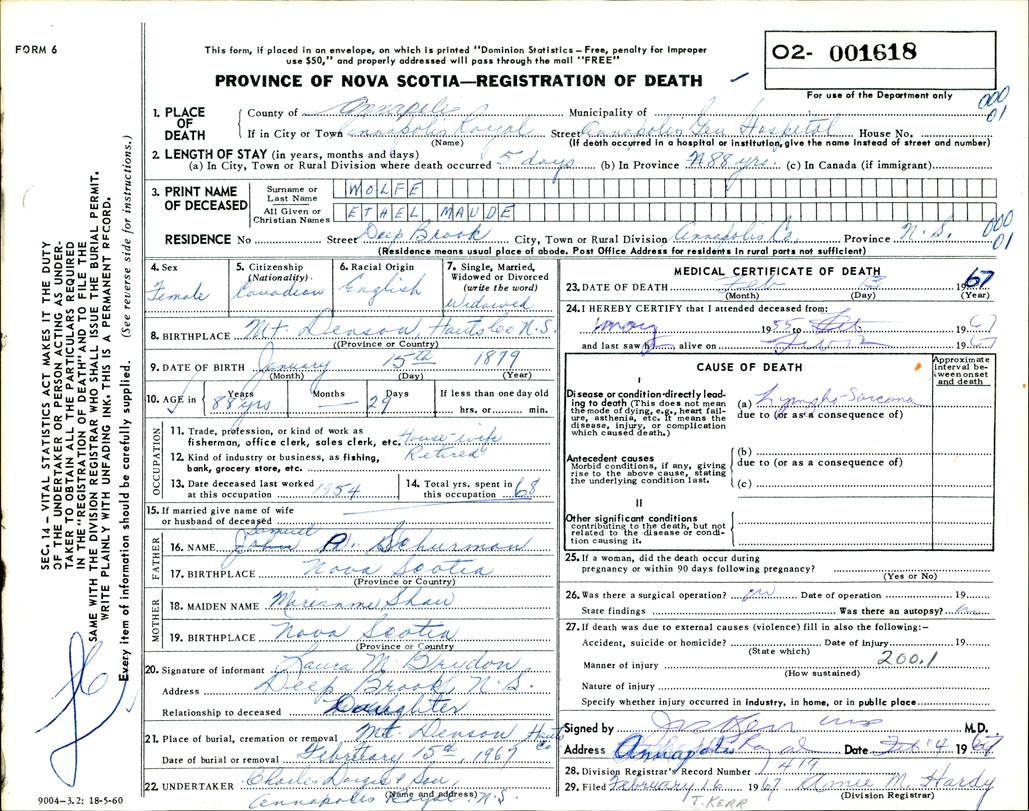 FORM 6
This form, if placed in an envelope, on which is printed "Dominion Statistics – Free, penalty for improper
use $50," and properly addressed will pass through the mail "FREE"
PROVINCE OF NOVA SCOTIA—REGISTRATION OF DEATH
02- 001618
For use of the Department only
000
01
1. PLACE OF DEATH
County of Annapolis Municipality of
If in City or Town Annapolis Royal Street Annapolis Gen Hospital House No.
(Name) (If death occurred in a hospital or institution, give the name instead of street and number)
2. LENGTH OF STAY (in years, months and days)
(a) In City, Town or Rural Division where death occurred 5 days (b) In Province 88 yrs. (c) In Canada (if immigrant)
3. PRINT NAME OF DECEASED
Surname or Last Name WOLFE
All Given or Christian Names ETHEL MAUDE
RESIDENCE No Street Deep Brook City, Town or Rural Division Annapolis Co. Province N.S.
000
01
(Residence means usual place of abode. Post Office Address for residents in rural parts not sufficient)
4. Sex
Female
5. Citizenship (Nationality)
Canadian
6. Racial Origin
English
7. Single, Married, Widowed or Divorced (write the word)
Widowed
8. BIRTHPLACE Mt. Denson, Hants Co N.S.
(Province or Country)
9. DATE OF BIRTH January 15th 1879
(Month) (Day) (Year)
10. AGE in Years Months Days If less than one day old
88 yrs — 29 hrs. or min.
OCCUPATION
11. Trade, profession, or kind of work as
fisherman, office clerk, sales clerk, etc. House-wife
12. Kind of industry or business, as fishing,
bank, grocery store, etc. Retired
13. Date deceased last worked
at this occupation 1954
14. Total yrs. spent in
this occupation 68
15. If married give name of wife
or husband of deceased
FATHER
Samuel
16. NAME John A. Schurman
17. BIRTHPLACE Nova Scotia
(Province or Country)
MOTHER
18. MAIDEN NAME Marianne Shaw
19. BIRTHPLACE Nova Scotia
(Province or Country)
20. Signature of informant Laura M. Brydon
Address Deep Brook, N.S.
Relationship to deceased Daughter
21. Place of burial, cremation or removal Mt. Denson Hants Co
Date of burial or removal Febretary 15th, 1967
22. UNDERTAKER Charles & Son
(Name and address)
Annapolis Royal N.S.
MEDICAL CERTIFICATE OF DEATH
23. DATE OF DEATH Feb 13 1967
(Month) (Day) (Year)
24. I HEREBY CERTIFY that I attended deceased from:
1955 to Feb 1967
and last saw h alive on 19
CAUSE OF DEATH
Approximate interval between onset and death
I
Disease or condition-directly lead-
ing to death (This does not mean
the mode of dying, e.g., heart fail-
ure, asthenia, etc. It means the
disease, injury, or complication
which caused death.)
(a) Lympho-Sarcoma
due to (or as a consequence of)
Antecedent causes
Morbid conditions, if any, giving
rise to the above cause, stating
the underlying condition last.
(b)
due to (or as a consequence of)
(c)
II
Other significant conditions
contributing to the death, but not
related to the disease or condi-
tion causing it.
25. If a woman, did the death occur during
pregnancy or within 90 days following pregnancy?
(Yes or No)
26. Was there a surgical operation? Date of operation 19
State findings Was there an autopsy?
27. If death was due to external causes (violence) fill in also the following:—
Accident, suicide or homicide? Date of injury 19
(State which)
200.1
Manner of injury
(How sustained)
Nature of injury
Specify whether injury occurred in industry, in home, or in public place
Signed by Jas Kerr M.D.
Address Annapolis Royal Date Feb 14 1967
28. Division Registrar's Record Number 1419
29. Filed February 16 1967 Annie M. Hardy
(Division Registrar)
J. KERR
9004—3.2: 18-5-60
SEC. 14 – VITAL STATISTICS ACT MAKES IT THE DUTY
OF THE UNDERTAKER OR PERSON ACTING AS UNDER-
TAKER TO OBTAIN ALL THE PARTICULARS REQUIRED
IN THE "REGISTRATION OF DEATH" AND TO FILE THE
SAME WITH THE DIVISION REGISTRAR WHO SHALL ISSUE THE BURIAL PERMIT.
WRITE PLAINLY WITH UNFADING INK. THIS IS A PERMANENT RECORD.
Every item of information should be carefully supplied. (See reverse side for instructions.)